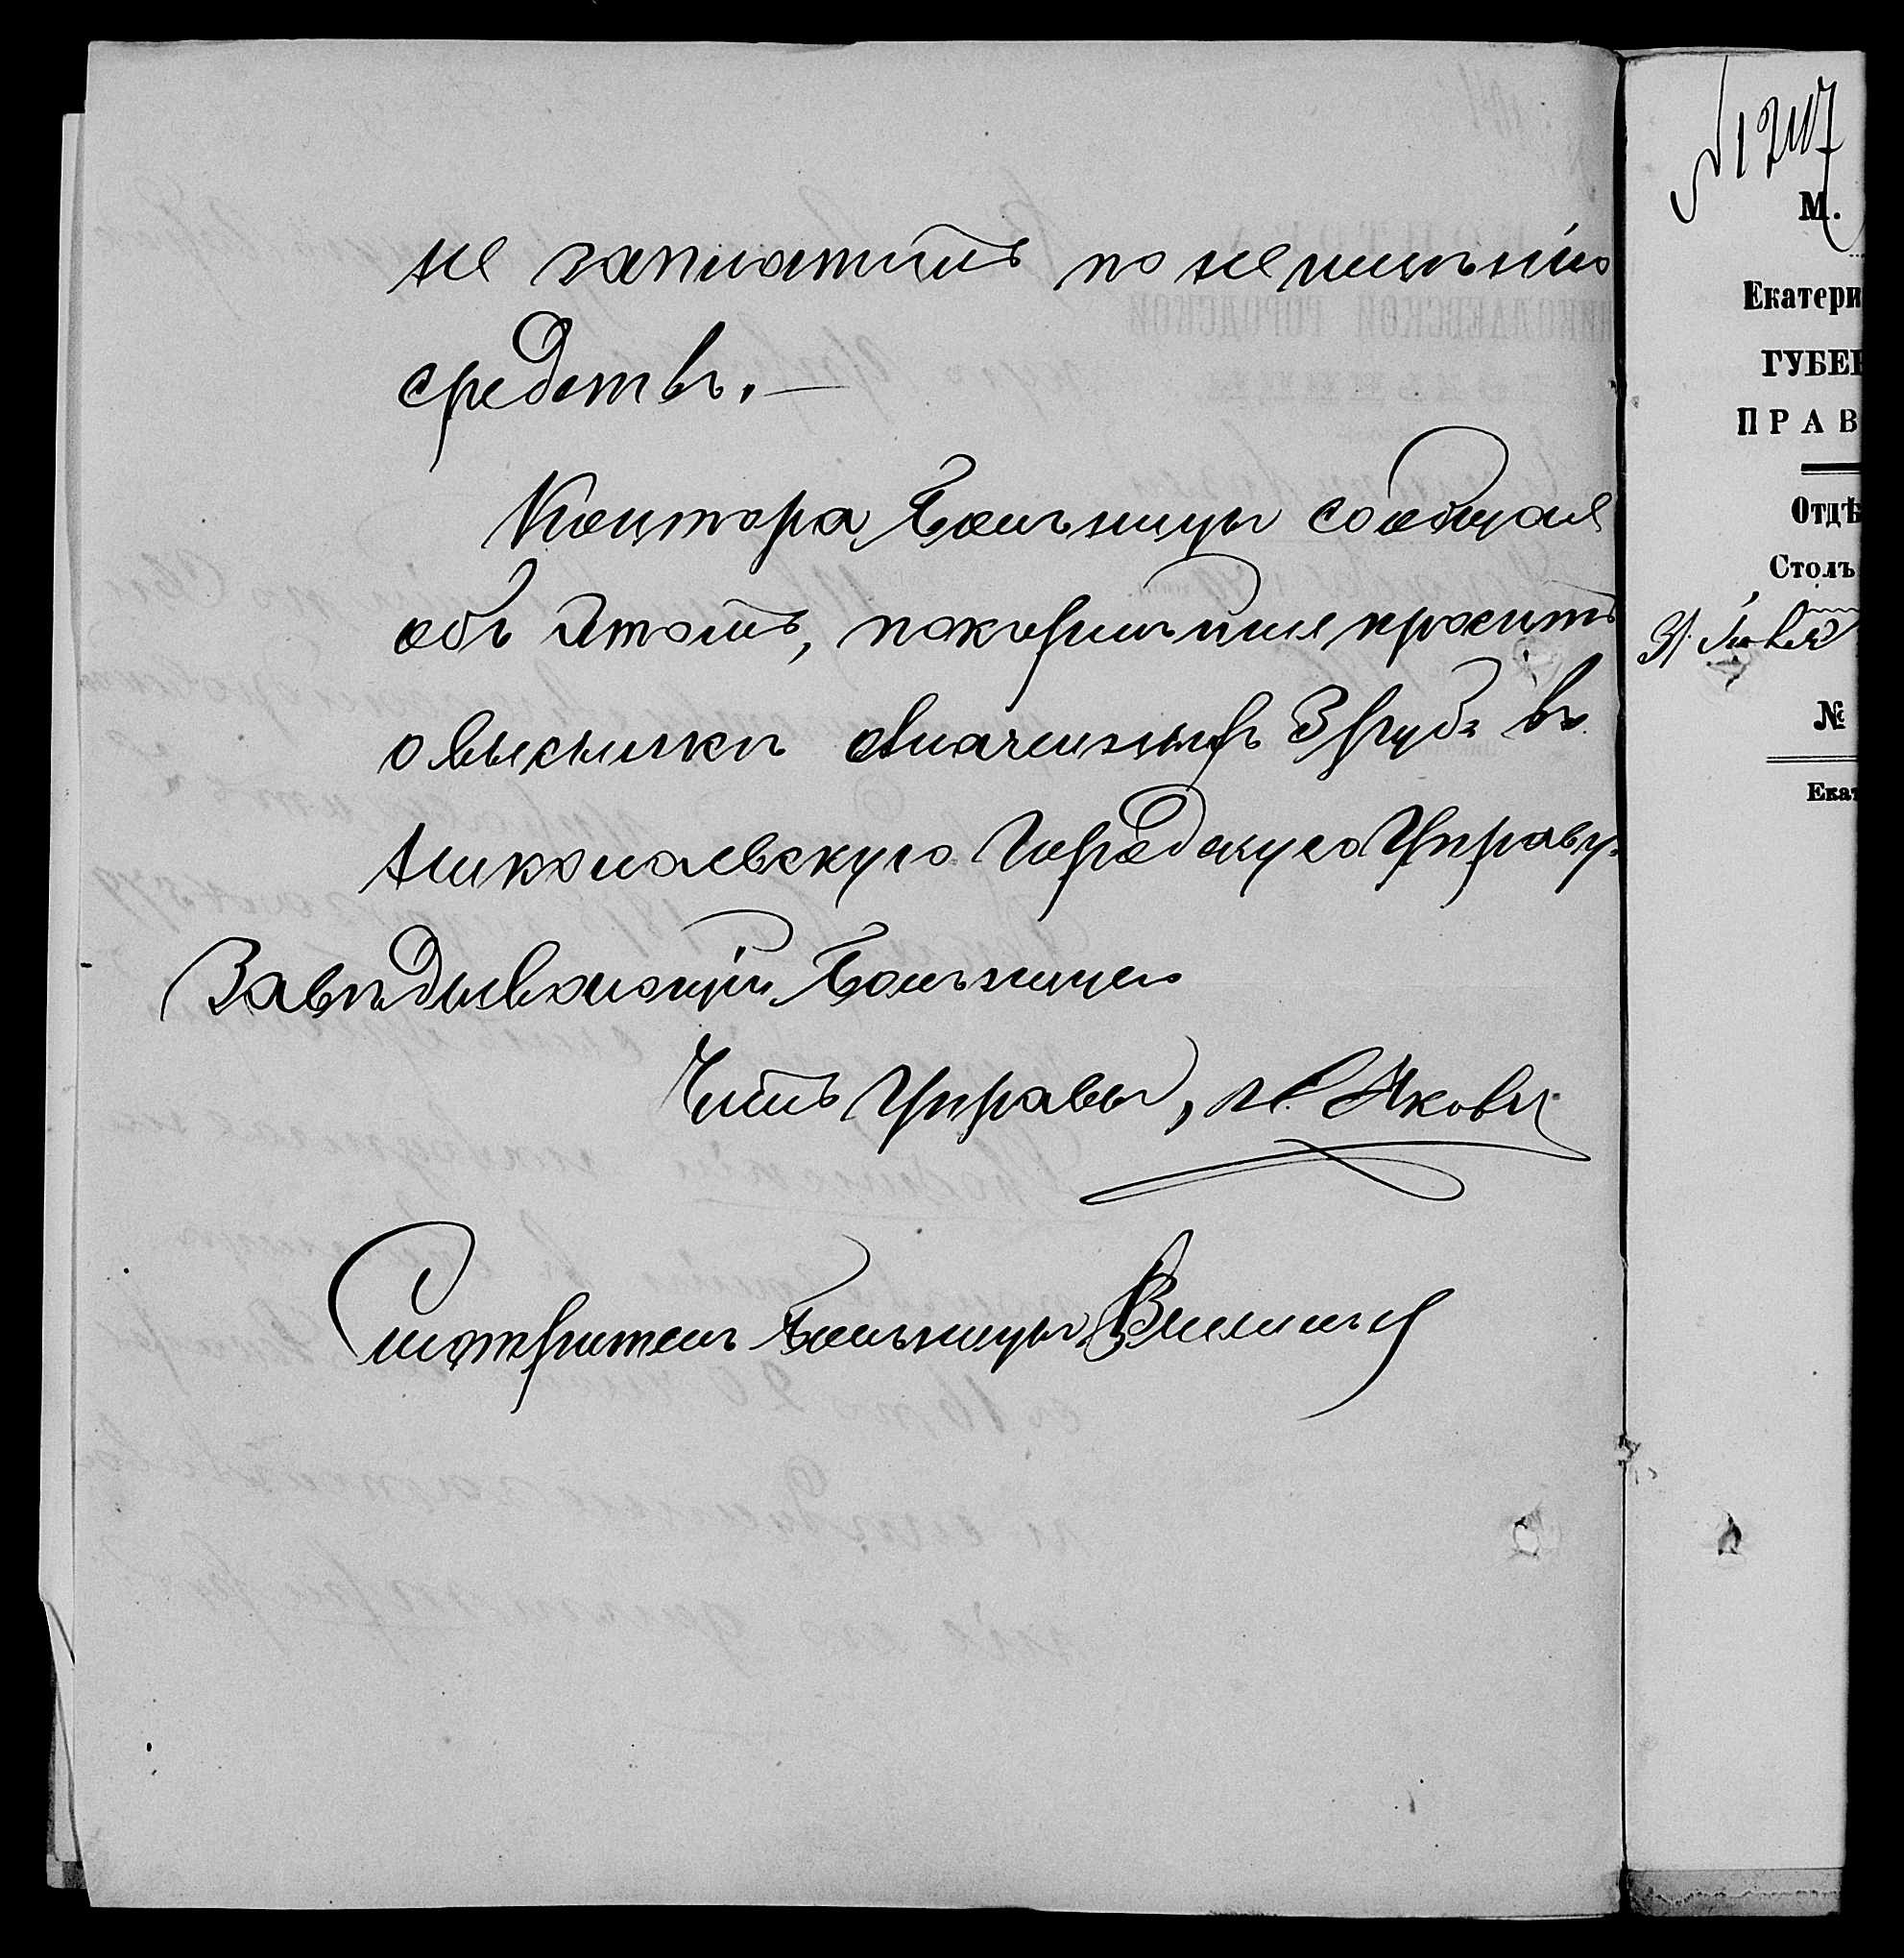 не заплатилъ по неимѣнію
средствъ.—
Контора Больницы сообщая
объ этомъ, покорнѣйше проситъ
о высылкѣ означенныхъ 3 руб. въ
Николаевскую Городскую Управу.
Завѣдывающій Больницею
Членъ Управы,
Смотритель Больницы
М.
Екатери
ГУБЕР
ПРАВ
Отдѣ
Столъ
31
№
Екат